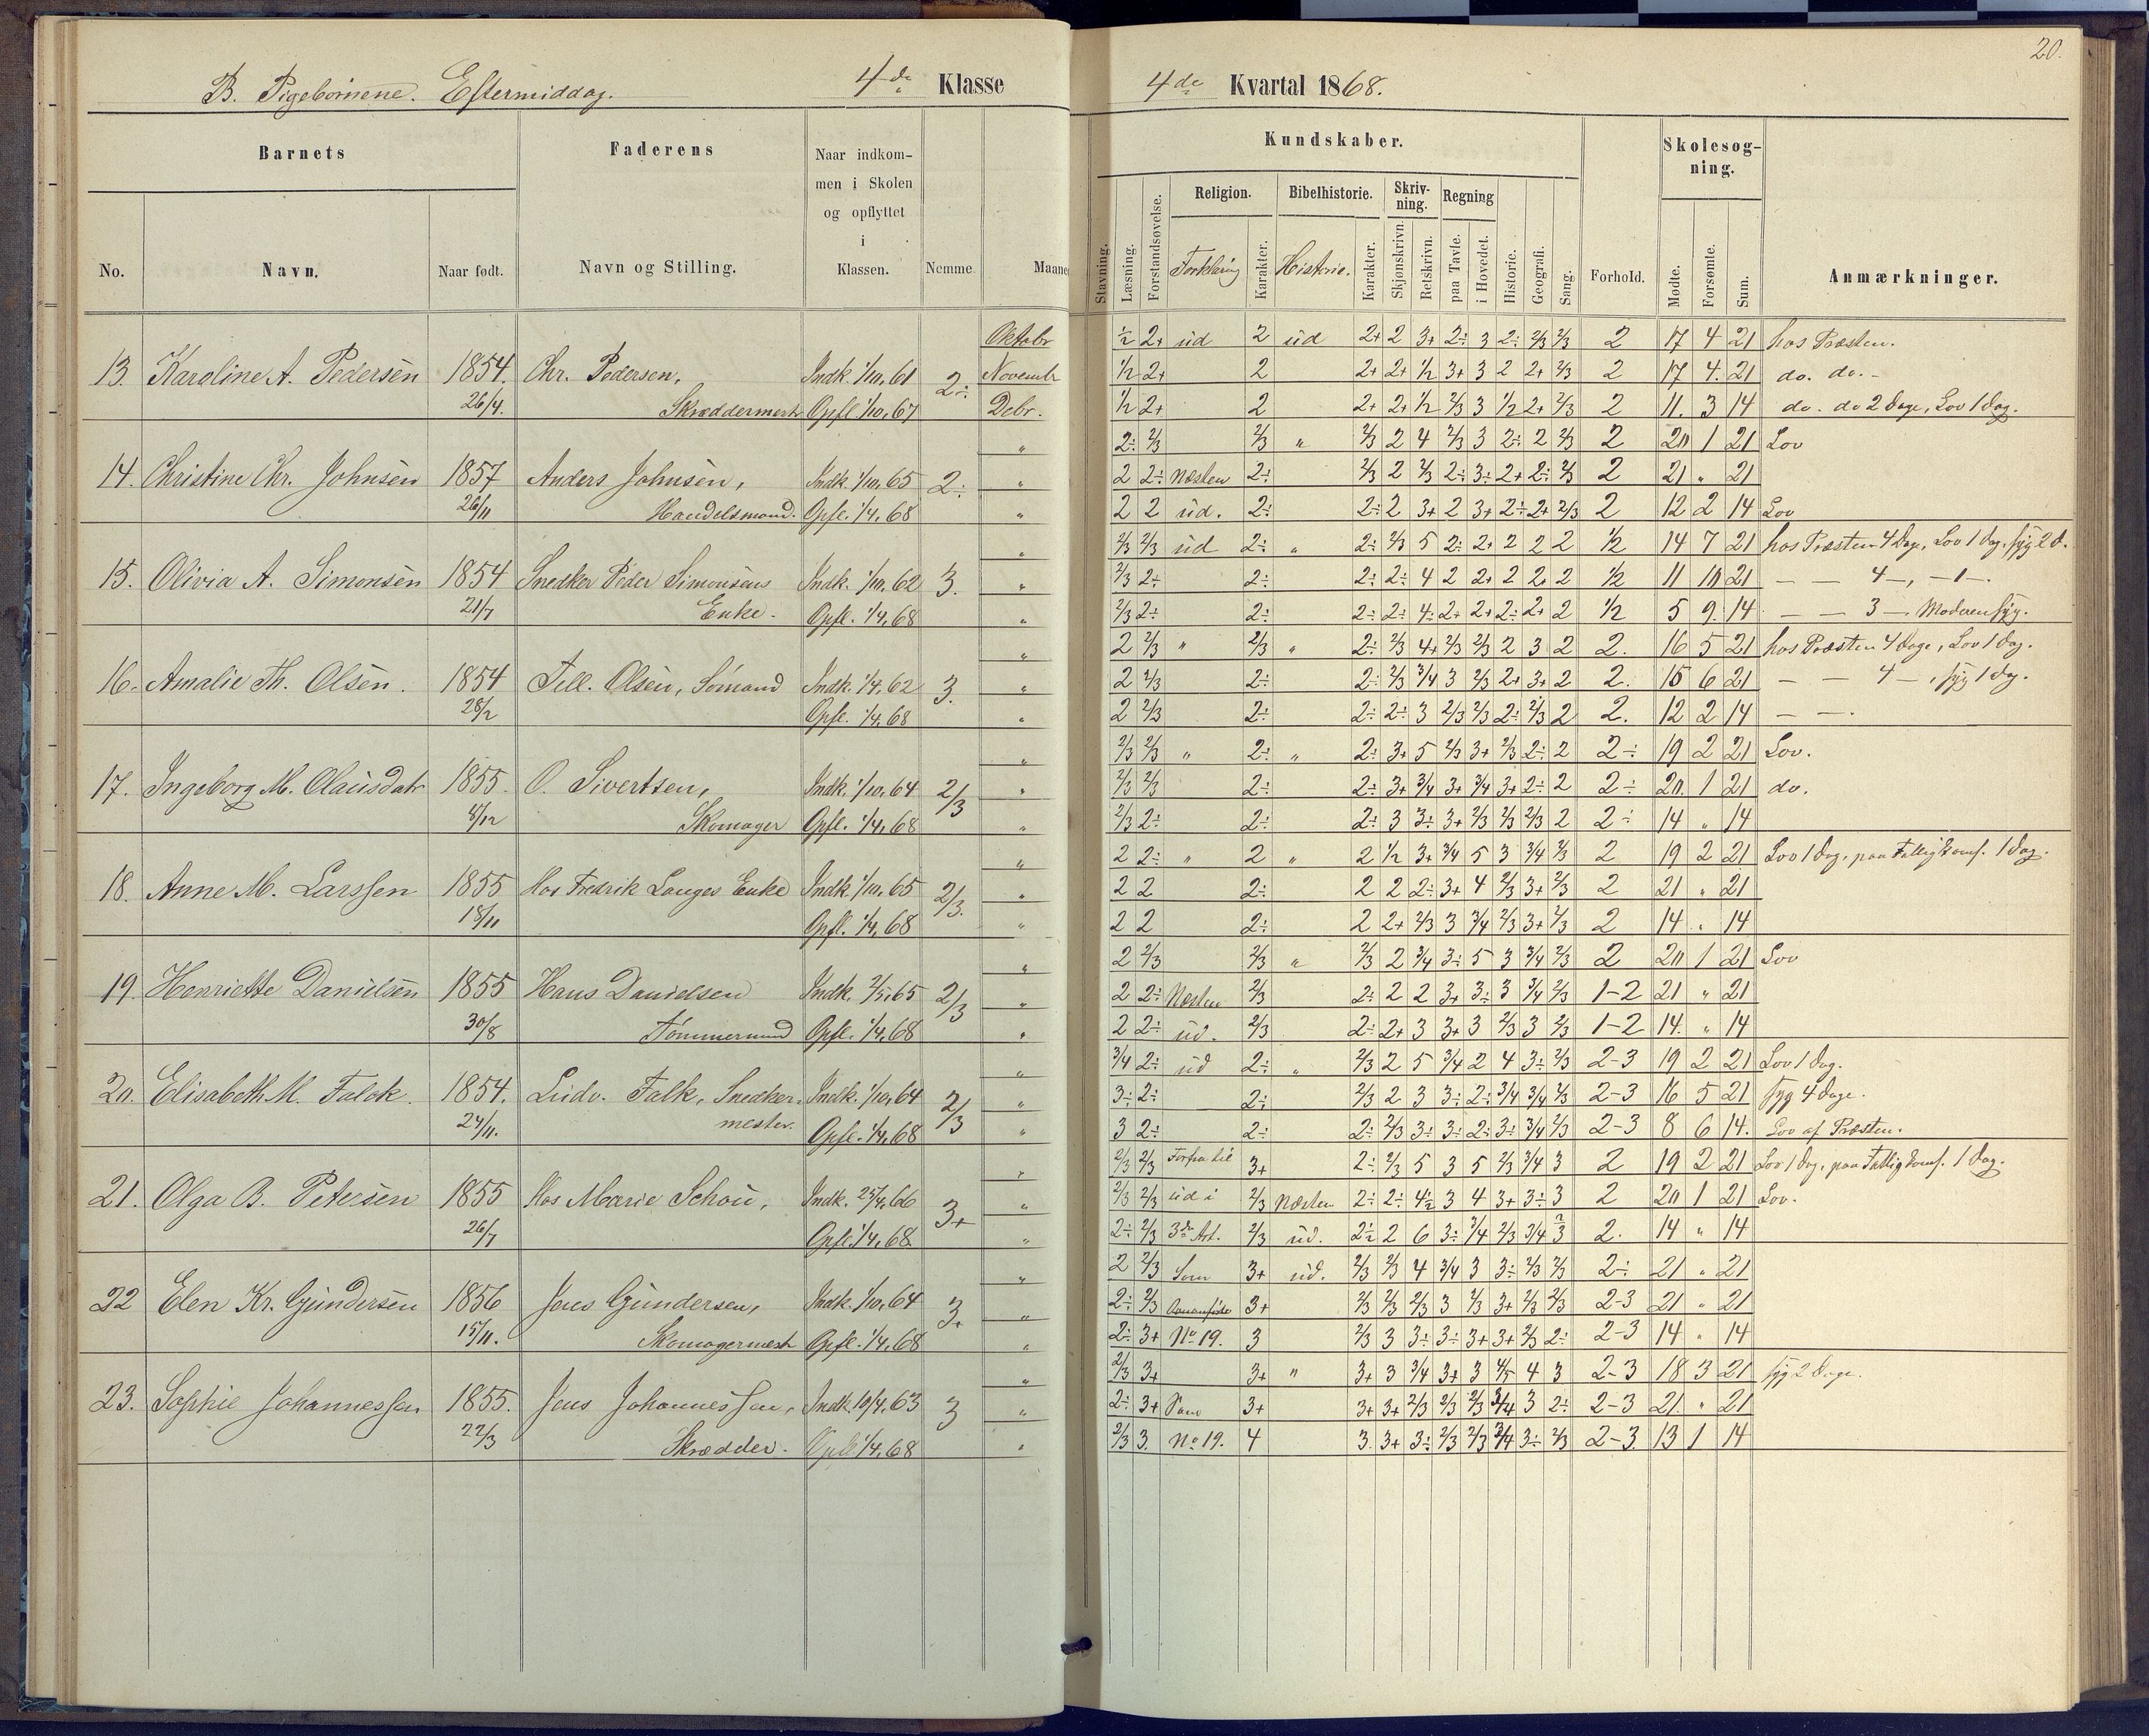 20.
B. Pigebørnene. Eftermiddag. 4de Klasse
4de Kvartal 1868.
Barnets
Faderens
Naar indkommen i Skolen og opflyttet i Klassen.
Nemme
Maaned
No.
Navn.
Naar født.
Navn og Stilling.
Kundskaber.
Stavning.
Læsning.
Forstandsøvelse.
Religion.
Forklaring
Karakter.
Bibelhistorie.
Historie.
Karakter.
Skrivning.
Skjønskrivn.
Retskrivn.
Regning
paa Tavle.
i Hovedet.
Historie.
Geografi.
Sang.
Forhold.
Skolesøgning.
Mødte.
Forsømte.
Sum.
Anmærkninger.
Oktobr ½ 2+ ud 2 ud 2+ 2 3+ 2÷ 3 2÷ 2/3 2/3 2 17 4 21 hos Præsten.
13. Karoline A. Pedersen 1854. Chr. Pedersen, Indk. 1/10, 61 2÷ Novembr ½ 2+ 2 2+ 2+ ½ 3+ 3 2 2+ 2/3 2 17 4. 21 do. do.
26/4. Skræddermestr Opfl. 1/10, 67 Debr. ½ 2+ 2 2+ 2+ ½ 2/3 3 ½ 2+ 2/3 2 11. 3 14 do. do 2 Dage, Lov 1 Dag.
" 2÷ 2/3 2/3 " 2/3 2 4 2/3 3 2÷ 2 2/3 2 20 1 21 Lov
14. Christine Chr. Johnsen 1857 Anders Johnsen, Indk. 1/10, 65 2÷ " 2 2÷ Næsten 2÷ 2/3 2 2/3 2÷ 3÷ 2+ 2÷ 2/3 2 21 " 21
26/11 Handelsmand. Opfl. 1/4, 68 " 2 2 ud. 2÷ 2÷ 2 3+ 2 3+ 2÷ 2+ 2/3 2 12 2 14 Lov
" 2/3 2/3 ud 2÷ " 2÷ 2/3 5 2÷ 2+ 2 2 2 ½ 14 7 21 hos Præsten 4 Dage, Lov 1 Dag, syg 2 D.
15. Olivia A. Simonsen 1854 Snedker Peder Simonsens Indk. 1/10, 62 3. " 2/3 2÷ 2÷ 2÷ 2÷ 4 2 2+ 2 2+ 2 ½ 11 10 21 — — 4 —, — 1 —.
21/7 Enke. Opfl. 1/4, 68 " 2/3 2÷ 2÷ 2÷ 2÷ 4÷ 2+ 2+ 2÷ 2+ 2 ½ 5 9. 14 — — 3 —. Moderen syg.
" 2 2/3 " 2/3 " 2÷ 2/3 4+ 2/3 2/3 2 3 2 2. 16 5 21 hos Præsten 4 Dage, Lov 1 Dag.
16. Amalie Th. Olsen. 1854 Tell. Olsen, Sømand Indk. 1/4, 62 3. " 2 2/3 2÷ 2÷ 2/3 3/4 3 2/3 2+ 3+ 2 2. 15 6 21 — — 4 —, syg 1 Dag.
28/2 Opfl. 1/4, 68 " 2 2/3 2÷ 2÷ 2÷ 3 2/3 2/3 2÷ 2/3 2 2. 12 2 14 — —.
" 2/3 2/3 " 2÷ " 2÷ 3+ 5 2/3 3+ 2/3 2÷ 2 2÷ 19 2 21 Lov.
17. Ingeborg M. Olausdatr 1855. O. Sivertsen, Indk. 1/10, 64 2/3 " 2/3 2/3 2÷ 2÷ 3+ 3/4 3+ 3/4 3+ 2÷ 2 2÷ 20. 1 21 do.
8/12 Skomager Opfl. 1/4, 68 " 2/3 2÷ 2÷ 2÷ 3 3÷ 3+ 2/3 2/3 2/3 2 2÷ 14 " 14
" 2 2÷ " 2 " 2 ½ 3+ 3/4 5 3 3/4 2/3 2 19 2 21 Lov 1 Dag, paa Fattigkoms. 1 Dag.
18. Anne M. Larssen 1855 Hos Fredrik Langes Enke Indk. 1/10, 65 2/3. " 2 2 2÷ 2 2 2÷ 3+ 4 2/3 3+ 2/3 2 21 " 21
18/11 Opfl. 1/4, 68 " 2 2 2÷ 2 2+ 2/3 3 3/4 2/3 3+ 2/3 2 14 " 14
" 2 2/3 2/3 " 2/3 2 3/4 3÷ 5 3 3/4 2/3 2 20 1 21 Lov
19. Henriette Danielsen 1855 Hans Danielsen Indk. 2/5, 65 2/3 " 2 2÷ Næsten 2/3 2÷ 2 2 3+ 3÷ 3 3/4 2/3 1-2 21 " 21
30/8 Tømmermand Opfl. 1/4, 68 " 2 2÷ ud. 2/3 2÷ 2+ 3 3+ 3 2/3 3 2/3 1-2 14. " 14
" 3/4 2÷ ud 2÷ " 2/3 2 5 3/4 2 4 3÷ 2/3 2-3 19 2 21 Lov 1 Dag.
20. Elisabeth M. Falck. 1854. Ludv. Falk, Snedker- Indk. 1/10, 64 2/3 " 3÷ 2÷ 2÷ 2/3 2 3 3÷ 2÷ 3/4 3/4 2/3 2-3 16 5 21 syg 4 Dage.
24/11. mester. Opfl. 1/4, 68 " 3 2÷ 2÷ 2÷ 2/3 3÷ 3÷ 2÷ 3÷ 3/4 2/3 2-3 8 6 14. Lov af Præsten.
" 2/3 2/3 Forfra til 3+ 2÷ 2/3 5 3 5 2/3 3/4 3 2 19 2 21 Lov 1 Dag, paa Fattigkoms. 1 Dag.
21. Olga B. Petersen 1855 Hos Marie Schou, Indk. 25/4, 66 3+ " 2/3 2/3 ud i 2/3 Næsten 2÷ 2÷ 4½ 3 4 3+ 3÷ 3 2 20 1 21 Lov.
26/7 Opfl. 1/4, 68. " 2÷ 2/3 3de Art. 2/3 ud. 2÷ 2 6 3÷ 3/4 2/3 3/4 2/3 2. 14 " 14
" 2 2/3 Som 3+ ud. 2/3 2/3 4 3/4 3 3÷ 2/3 2/3 2÷ 21 " 21
22 Elen Kr. Gundersen 1856 Jens Gundersen, Indk. 1/10, 64 3+ " 2÷ 2/3 3+ 2/3 2/3 2/3 3 2/3 3+ 2/3 2/3 2-3 21 " 21
15/11. Skomagermestr Opfl. 1/4, 68 " 2÷ 3+ No 19. 3 2/3 3 3÷ 3÷ 3+ 3+ 2/3 2÷ 2-3 14 " 14
" 2/3 3+ 3+ " 3+ 3 3/4 3+ 3 4/5 4 3 2-3 18 3 21 syg 2 Dage.
23. Sophie Johannessen 1855. Jens Johannessen, Indk. 10/4, 63 3 " 2÷ 3+ Som 3+ 3+ 3+ 2/3 2/3 2/3 3/4 3 2÷ 2-3 21. " 21
22/3 Skrædder. Opfl. 1/4, 68 " 2/3 3. No 19. 4 3. 3+ 3÷ 2/3 2/3 3/4 3÷ 2/3 2-3. 13 1 14